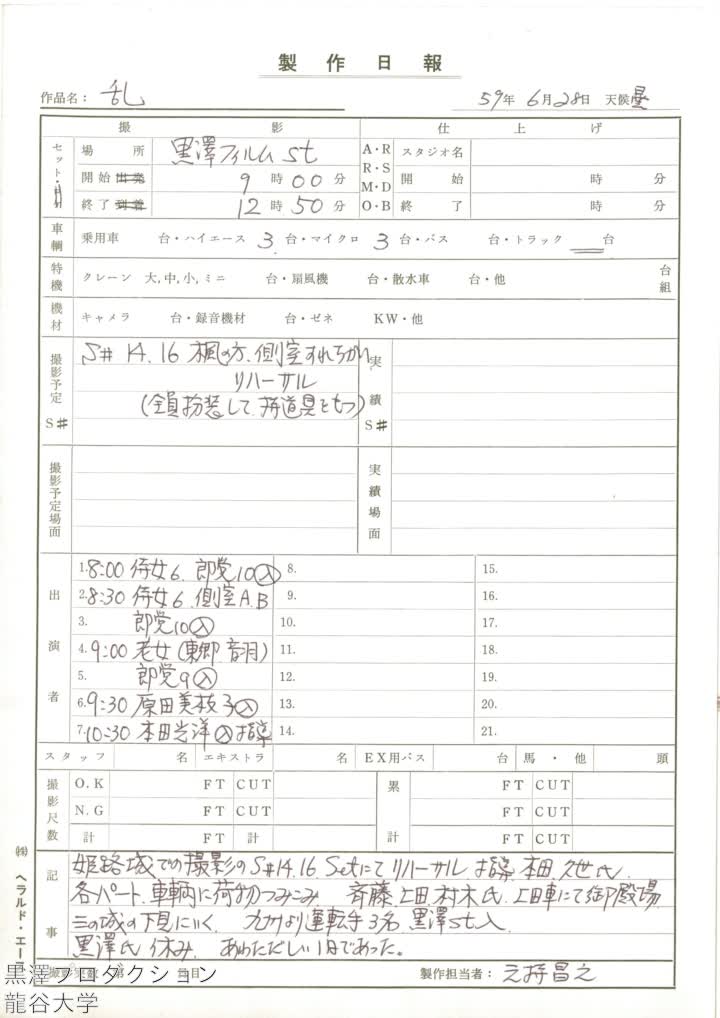 製作日報
作品名： 乱 59年 6月28日 天候 曇
撮影 仕上げ
セット・ 場所 黒澤フィルムSt A・R スタジオ名
開始 出発 9時00分 R・S M・D 開始 時 分
終了 到着 12時50分 O・B 終了 時 分
車輌 乗用車 台・ハイエース 3 台・マイクロ 3 台・バス 台・トラック 台
特機 クレーン 大,中,小,ミニ 台・扇風機 台・散水車 台・他 台 組
機材 キャメラ 台・録音機材 台・ゼネ KW・他
撮影予定 S# 実績 S#
S# 14.16 楓の方、側室すれちがい
リハーサル
(全員扮装して、持道具をもつ)
撮影予定場面 実績場面
出演者
1. 8:00 侍女6. 郎党10入 8. 15.
2. 8:30 侍女6. 側室A.B 9. 16.
3. 郎党10入 10. 17.
4. 9:00 老女(東郷 音羽) 11. 18.
5. 郎党9入 12. 19.
6. 9:30 原田美枝子入 13. 20.
7. 10:30 本田光洋入 指導 14. 21.
スタッフ 名 エキストラ 名 EX用バス 台 馬・他 頭
撮影尺数 O.K FT CUT 累計 FT CUT
N.G FT CUT FT CUT
計 FT CUT FT CUT
記事
姫路城での撮影のS#14.16 Setにてリハーサル 指導 本田.久世氏.
各パート、車輌に荷物つみこみ 斉藤、上田、村木氏. 上田車にて御殿場
三の城の下見にいく. 九州より運転手3名 黒澤St入.
黒澤氏 休み. あわただしい1日であった。
撮影 数 第 日目 製作担当者：之持昌之
㈱ ヘラルド・エース
黒澤プロダクション
龍谷大学